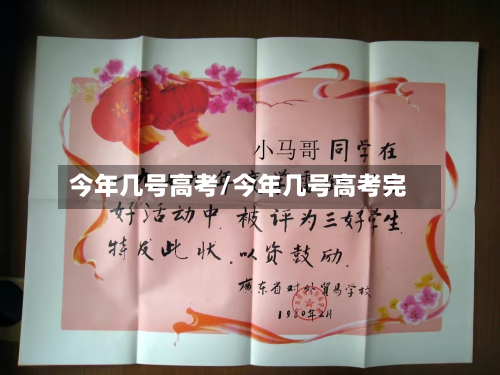 小马哥 同学在
今年几号高考/今年几号高考完
好活动中. 被评为三好学生.
特发此状. 以资鼓励.
广东省对外贸易学校
1980年2月